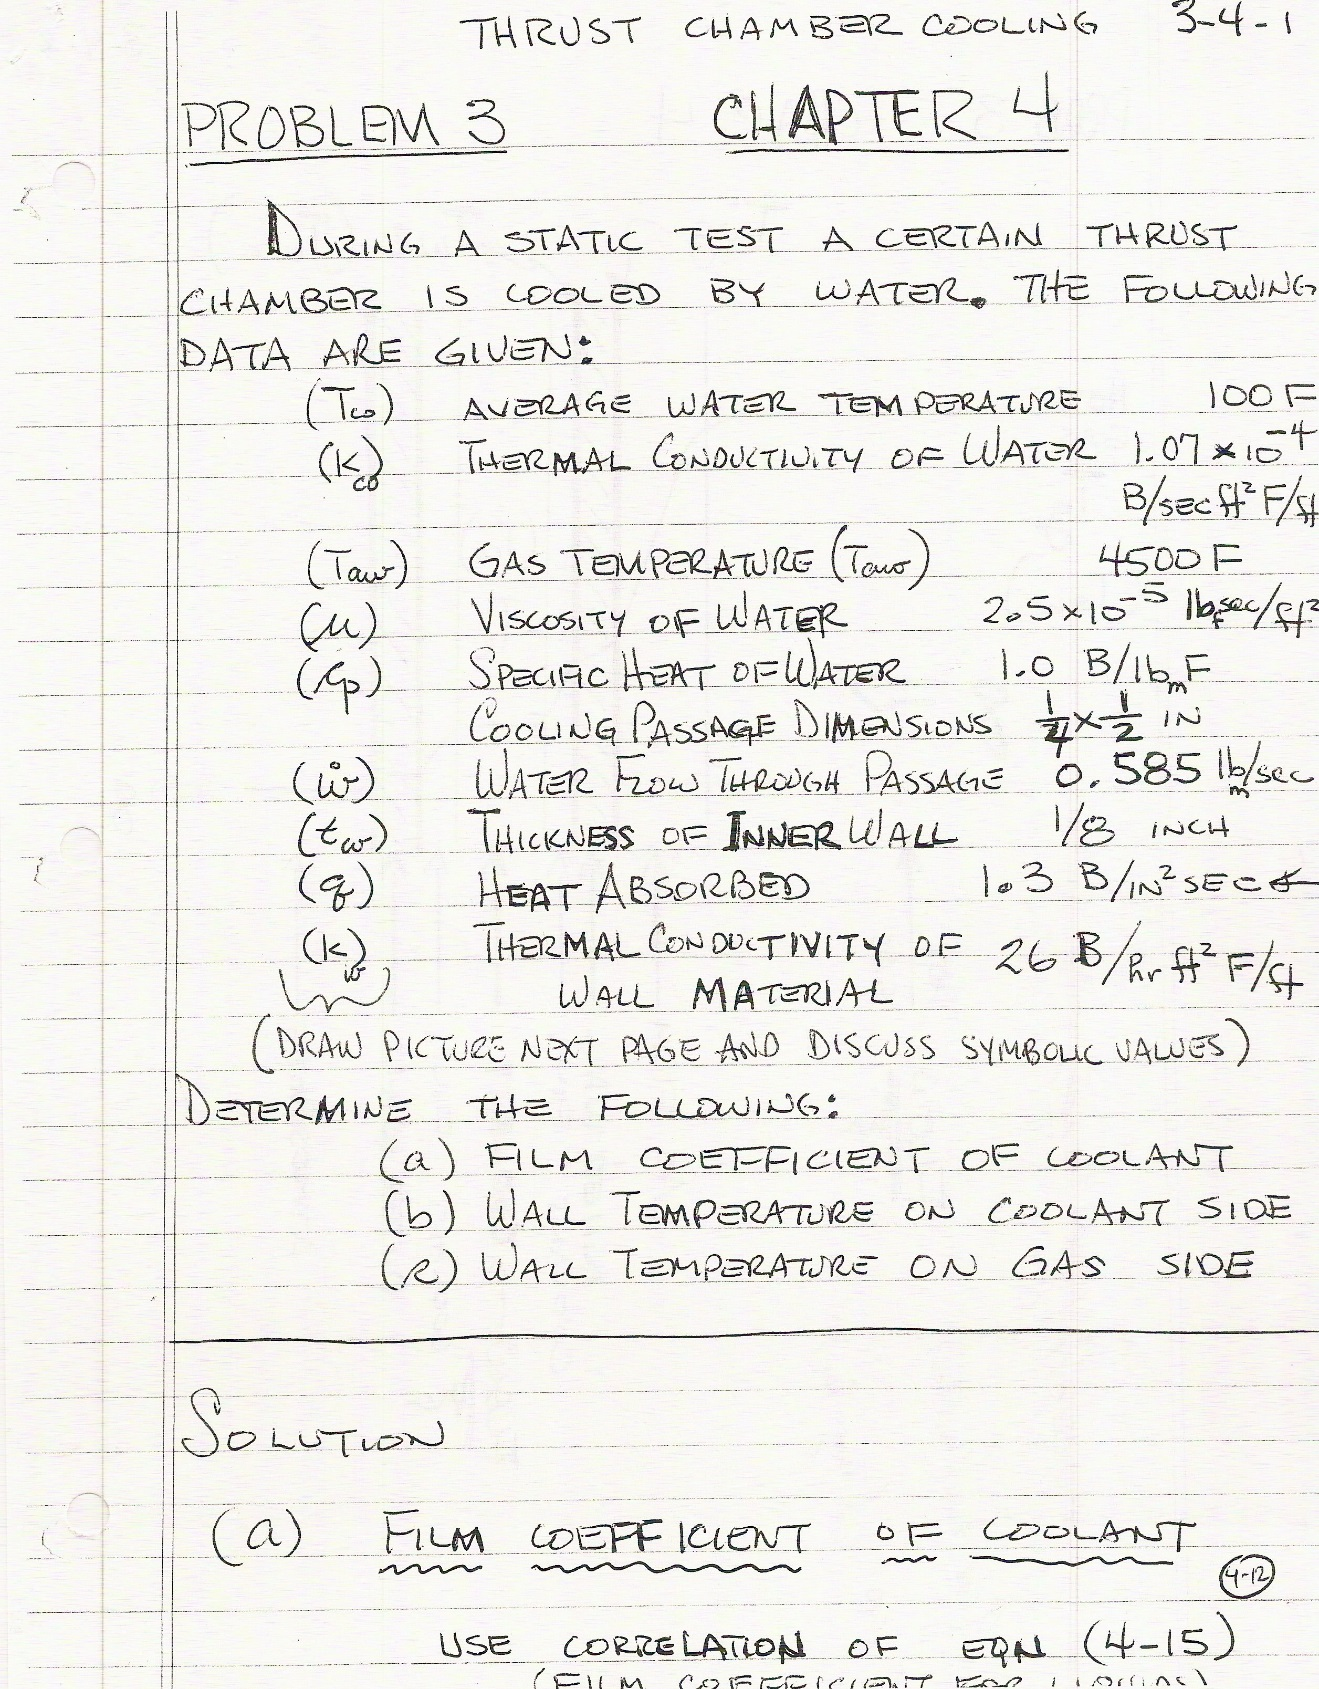 THRUST CHAMBER COOLING 3-4-1
PROBLEM 3 CHAPTER 4
DURING A STATIC TEST A CERTAIN THRUST
CHAMBER IS COOLED BY WATER. THE FOLLOWING
DATA ARE GIVEN:
(Tco) AVERAGE WATER TEMPERATURE 100 F
(kco) THERMAL CONDUCTIVITY OF WATER 1.07 × 10⁻⁴
B/sec ft² F/ft
(Taw) GAS TEMPERATURE (Taw) 4500 F
(μ) VISCOSITY OF WATER 2.5 × 10⁻⁵ lbf sec/ft²
(cp) SPECIFIC HEAT OF WATER 1.0 B/lbm F
COOLING PASSAGE DIMENSIONS 1/4 × 1/2 IN
(ẇ) WATER FLOW THROUGH PASSAGE 0.585 lbm/sec
(tw) THICKNESS OF INNER WALL 1/8 INCH
(q) HEAT ABSORBED 1.3 B/IN² SEC ←
(kw) THERMAL CONDUCTIVITY OF 26 B/hr ft² F/ft
WALL MATERIAL
(DRAW PICTURE NEXT PAGE AND DISCUSS SYMBOLIC VALUES)
DETERMINE THE FOLLOWING:
(a) FILM COEFFICIENT OF COOLANT
(b) WALL TEMPERATURE ON COOLANT SIDE
(c) WALL TEMPERATURE ON GAS SIDE
SOLUTION
(a) FILM COEFFICIENT OF COOLANT
4-12
USE CORRELATION OF EQN (4-15)
(FILM COEFFICIENT FOR LIQUIDS)